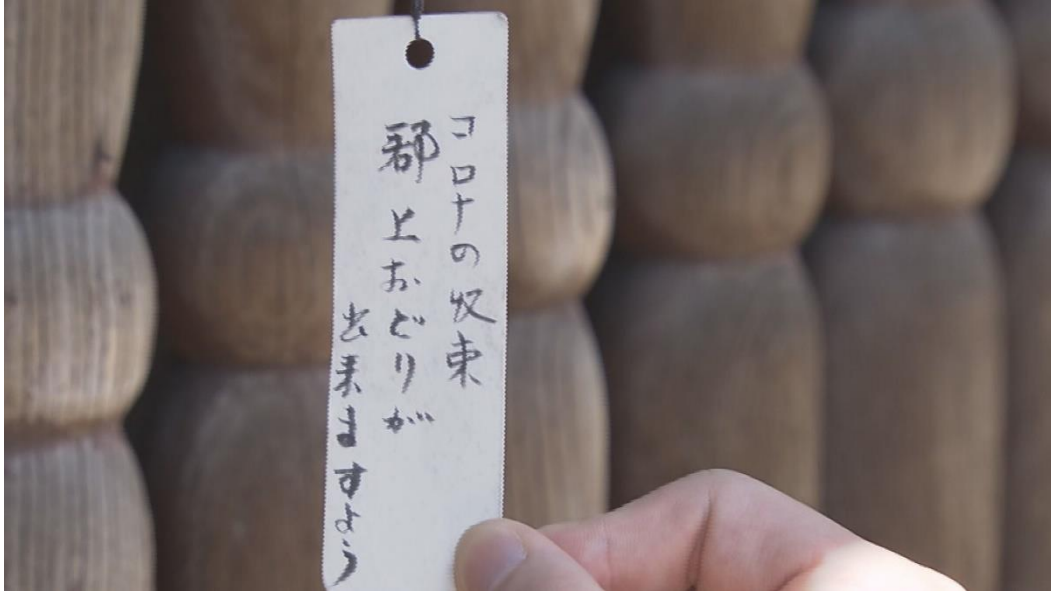 コロナの収束
郡上おどりが
出来ますよう